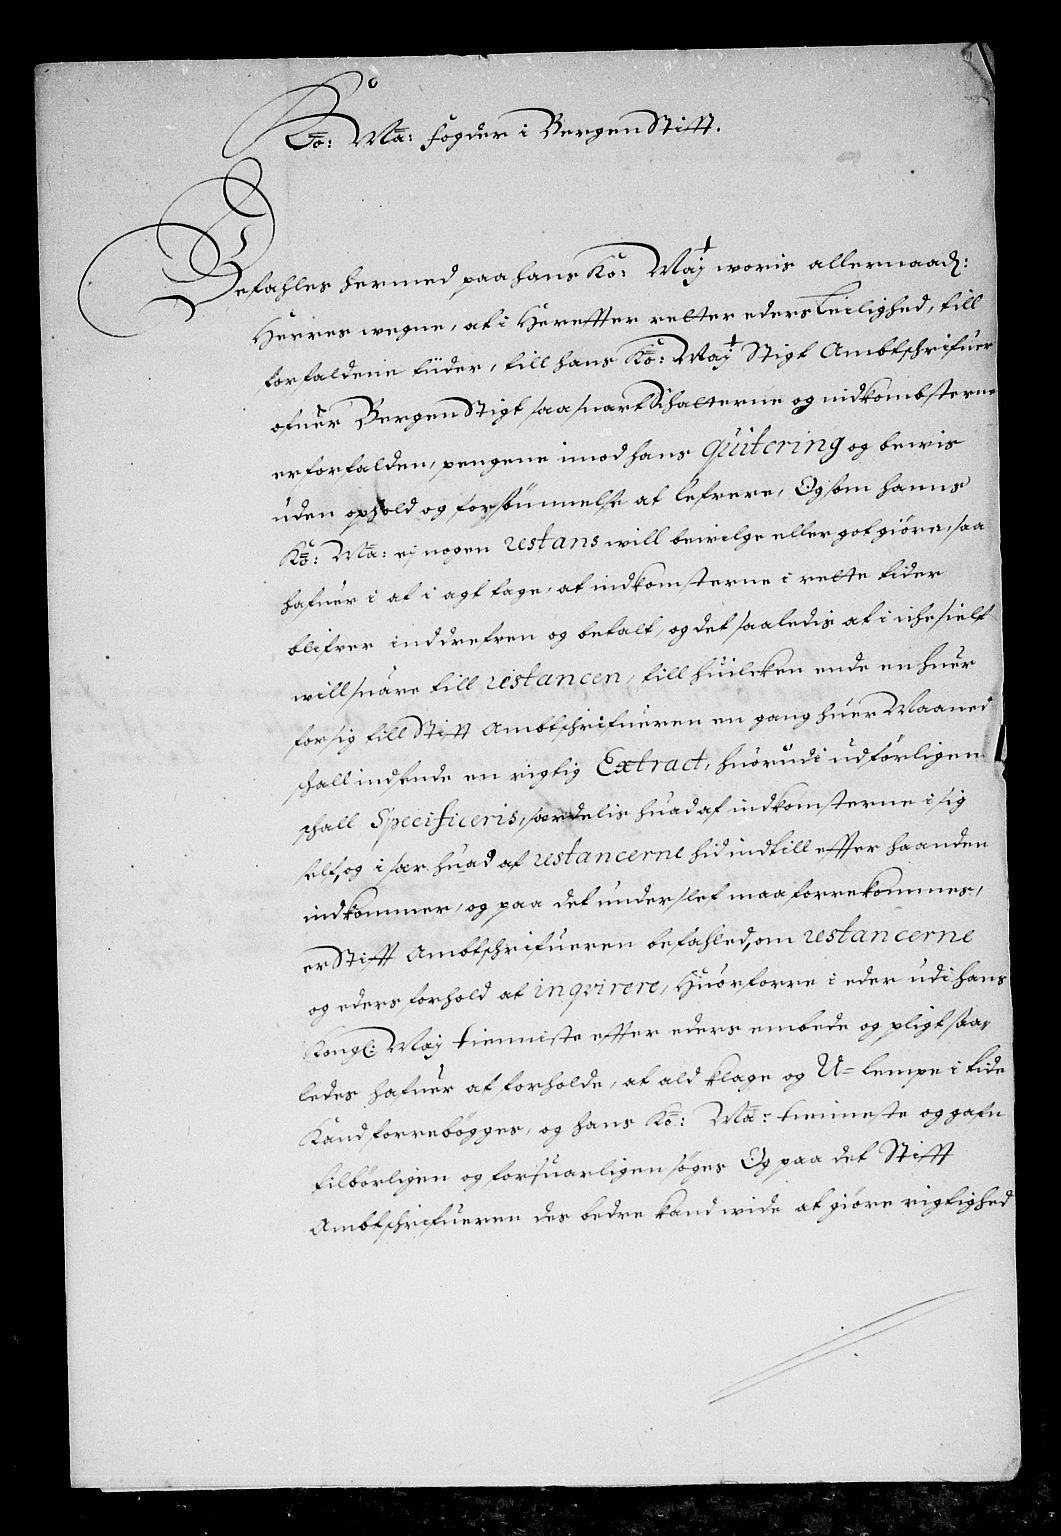 Ko: Ma: fogder i Bergen Stifft.
Befahles hermed paa hans Ko: Maj woris allernaad:
Herres wegne, at i Hereffter retter eders Leilighed, till
forfaldene tiider, till hans Ko: Maj Stigt Ambtschrifuer
ofuer Bergen Stigt saa snart Schatterne og indkombsterne
er forfalden, pengene imod hans quitering og bewis
uden ophold og forsömmelse at lefrere, Og som hanns
Ko: Ma: ej nogen restans will bewilge eller got giöre, saa
hafuer i at i agt tage, at indkomsterne i rette tider
blifuer inddrefren og betalt, og det saaledis at i iche sielf
will suare till restancen, till huilcken ende en huer
for sig till Stifft Ambtschrifueren en gang huer Maaned
schall indsende en rigtig Extract, huorudi udförligen
schall Specificeris, særdelis huad af indkomsterne i sig
self, og i sær huad af restancerne hid indtill effter haanden
indkommer, og paa det underslef maa forrekommes,
er Stifft Ambtschrifueren befahled, om restancerne
og eders forhold at inqvirere, Huorforre i eder udi hans
Kongl: Maj tienniste effter eders embede og pligt saa-
ledes hafuer at forholde, at ald klage og U=lempe i tide
Kand forrebögges, og hans Ko: Ma: tienneste og gafn
tilbörligen og forsuarligen söges Og paa det Stifft
Ambtschrifueren des bedre kand wide at giöre rigtighed